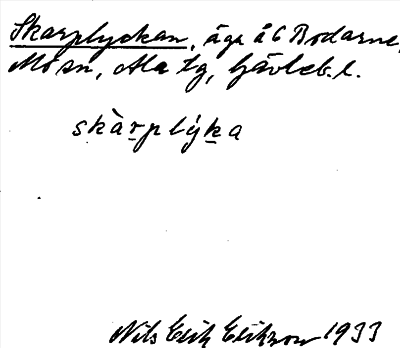 Skarplyckan, äga å 6 Bodarne,
Mo sn, Ala tg, Gävleb. l.
skàrplýka
Nils Erik Erikson 1933